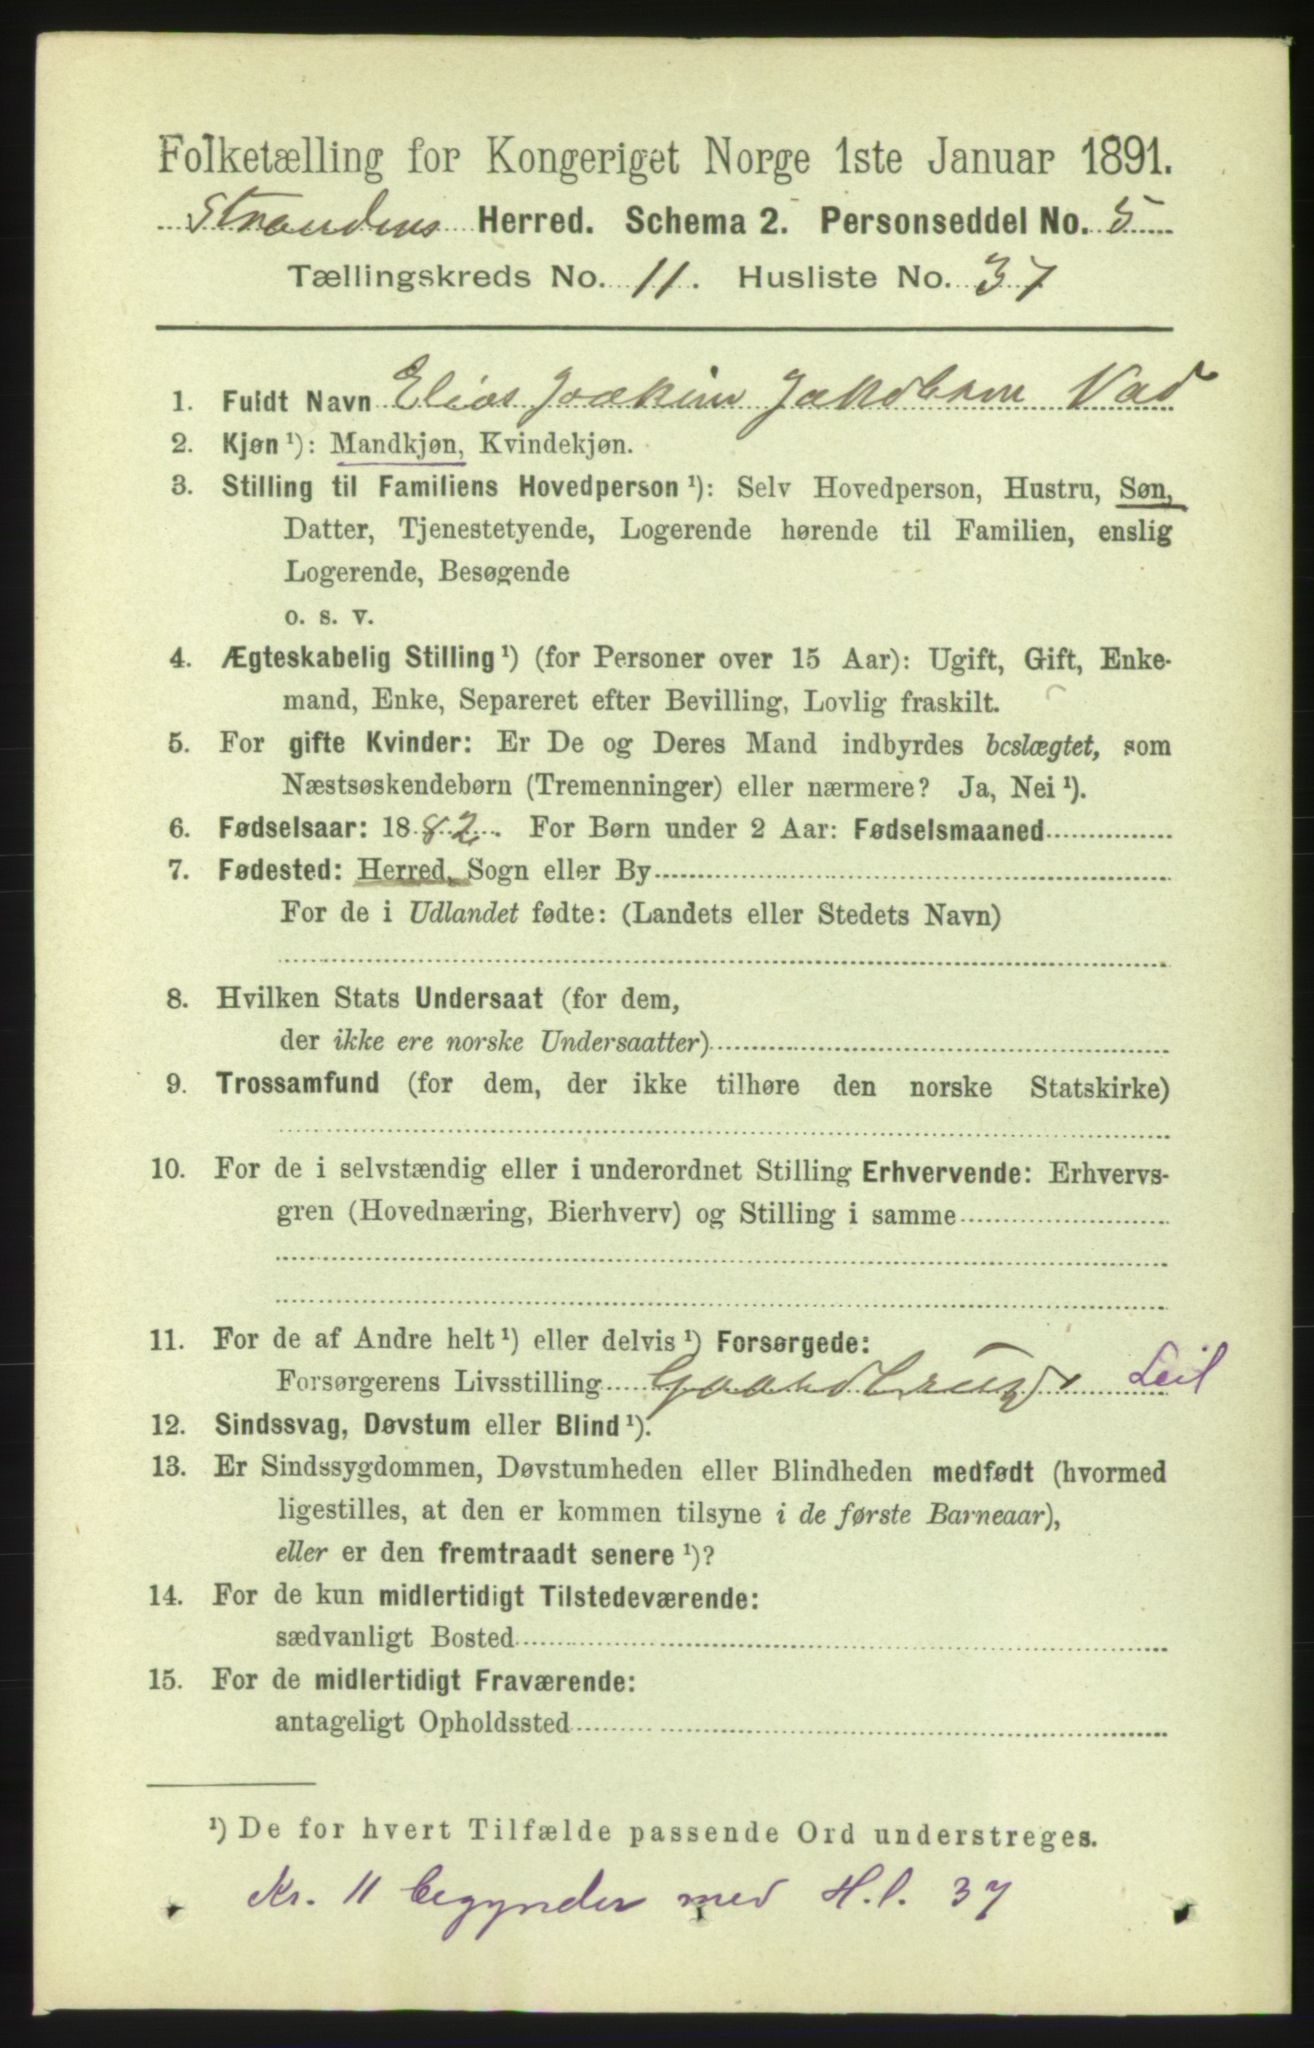 Folketælling for Kongeriget Norge 1ste Januar 1891.
Strandens Herred. Schema 2. Personseddel No. 5
Tællingskreds No. 11. Husliste No. 37
1. Fuldt Navn Elias Joakim Jakobsen Vad
2. Kjøn ¹): Mandkjøn, Kvindekjøn.
3. Stilling til Familiens Hovedperson ¹): Selv Hovedperson, Hustru, Søn,
Datter, Tjenestetyende, Logerende hørende til Familien, enslig
Logerende, Besøgende
o. s. v.
4. Ægteskabelig Stilling ¹) (for Personer over 15 Aar): Ugift, Gift, Enke-
mand, Enke, Separeret efter Bevilling, Lovlig fraskilt.
5. For gifte Kvinder: Er De og Deres Mand indbyrdes beslægtet, som
Næstsøskendebørn (Tremenninger) eller nærmere? Ja, Nei ¹).
6. Fødselsaar: 1882. For Børn under 2 Aar: Fødselsmaaned
7. Fødested: Herred, Sogn eller By
For de i Udlandet fødte: (Landets eller Stedets Navn)
8. Hvilken Stats Undersaat (for dem,
der ikke ere norske Undersaatter)
9. Trossamfund (for dem, der ikke tilhøre den norske Statskirke)
10. For de i selvstændig eller i underordnet Stilling Erhvervende: Erhvervs-
gren (Hovednæring, Bierhverv) og Stilling i samme
11. For de af Andre helt ¹) eller delvis ¹) Forsørgede:
Forsørgerens Livsstilling Gaardbrug Leil
12. Sindssvag, Døvstum eller Blind ¹).
13. Er Sindssygdommen, Døvstumheden eller Blindheden medfødt (hvormed
ligestilles, at den er kommen tilsyne i de første Barneaar),
eller er den fremtraadt senere ¹)?
14. For de kun midlertidigt Tilstedeværende:
sædvanligt Bosted
15. For de midlertidigt Fraværende:
antageligt Opholdssted
¹) De for hvert Tilfælde passende Ord understreges.
Kr. 11 begynder med H.l. 37